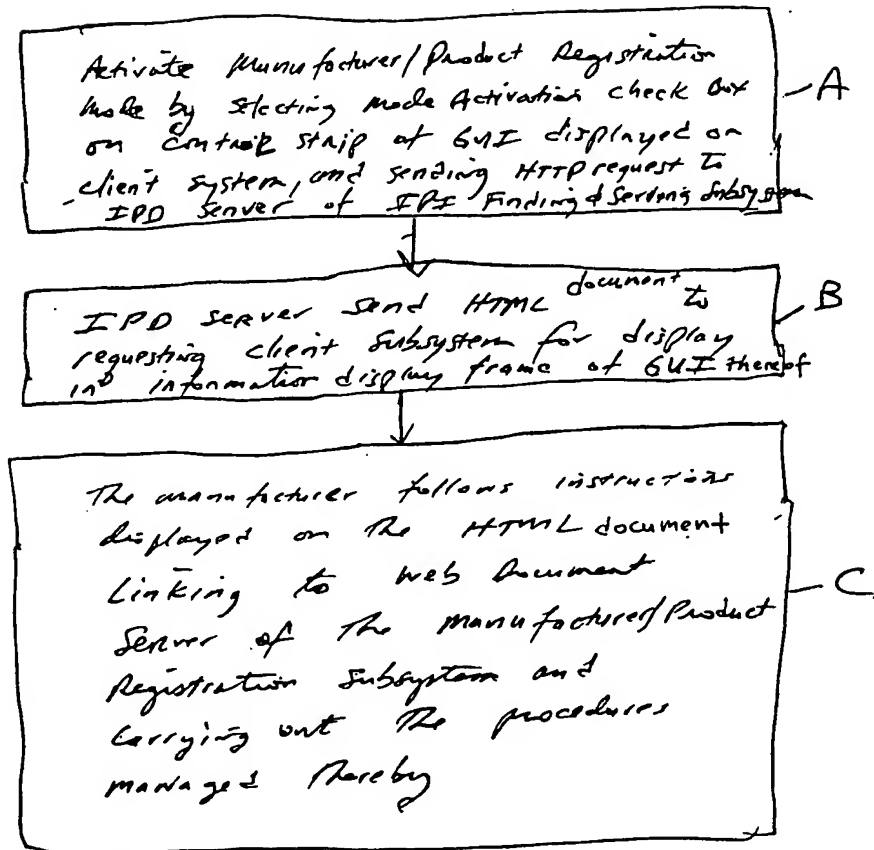 Activate Manufacturer/Product Registration
Mode by selecting Mode Activation check Box
on control strip of GUI displayed on
client system, and sending HTTP request to
IPD server of IPI Finding & Serving Subsystem
A
IPD server send HTML document to
requesting client subsystem for display
in information display frame of GUI thereof
B
The manufacturer follows instructions
displayed on the HTML document
Linking to web Document
Server of the Manufacturer/Product
Registration Subsystem and
Carrying out the procedures
managed thereby
C